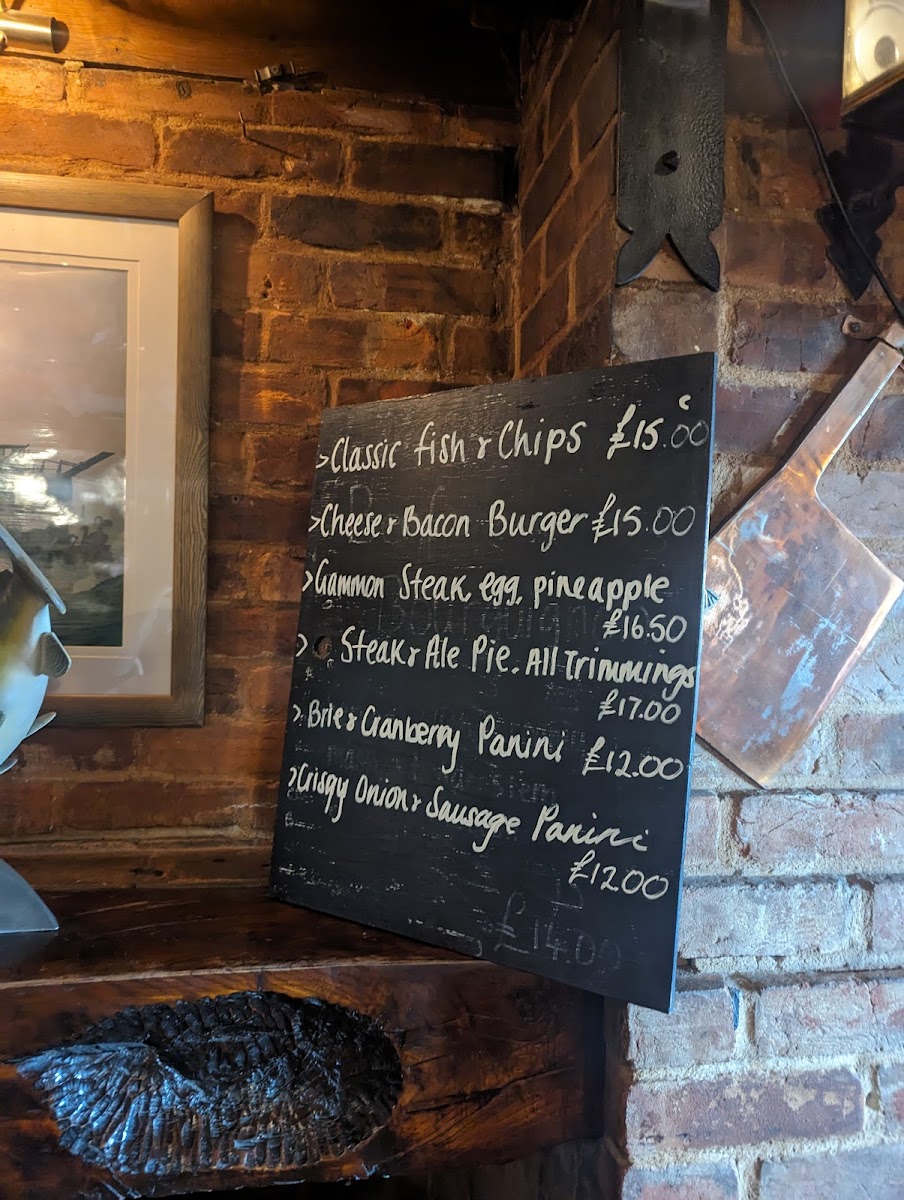 >Classic fish & Chips £15.00
>Cheese & Bacon Burger £15.00
>Gammon Steak, egg, pineapple
£16.50
> Steak & Ale Pie. All Trimmings
£17.00
> Brie & Cranberry Panini £12.00
>Crispy Onion & Sausage Panini
£12.00
£14.00